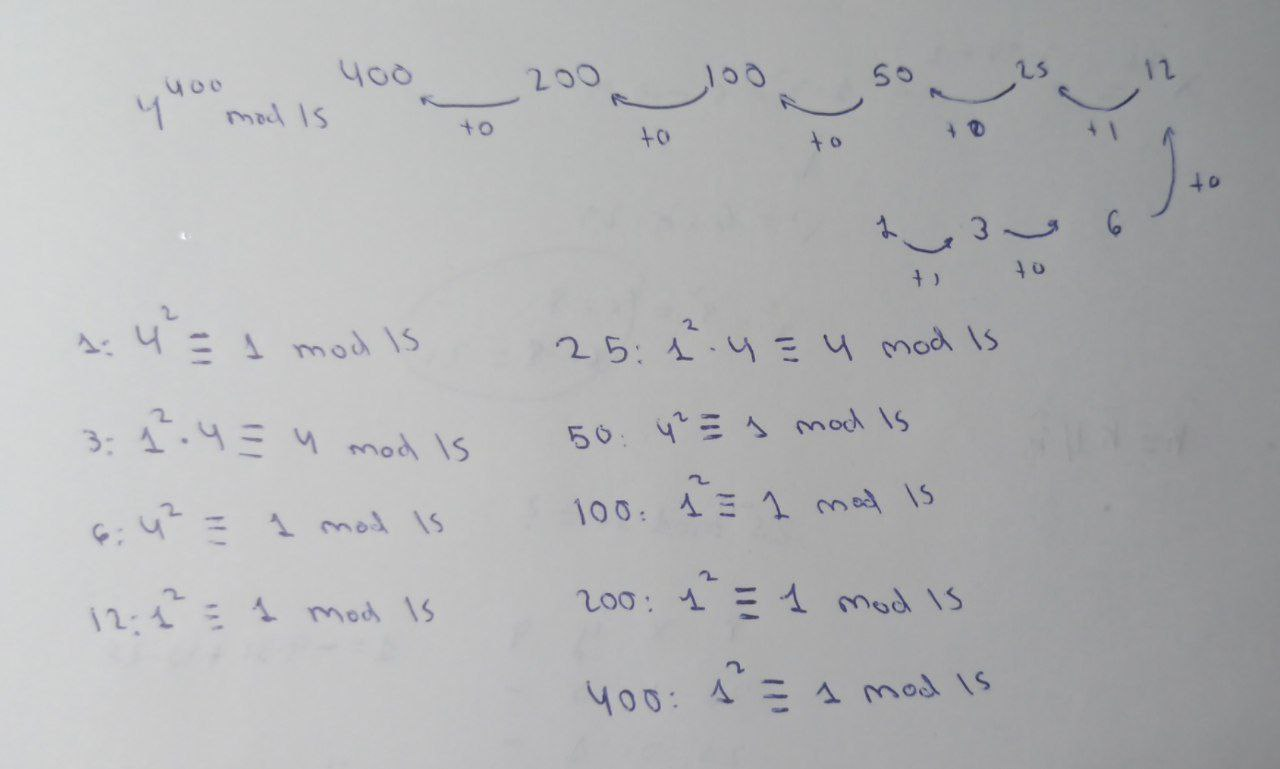 4^400 mod 15 400 200 100 50 25 12
+0 +0 +0 +0 +1
+0
1 3 6
+1 +0
1: 4² ≡ 1 mod 15
3: 1² · 4 ≡ 4 mod 15
6: 4² ≡ 1 mod 15
12: 1² ≡ 1 mod 15
25: 1² · 4 ≡ 4 mod 15
50: 4² ≡ 1 mod 15
100: 1² ≡ 1 mod 15
200: 1² ≡ 1 mod 15
400: 1² ≡ 1 mod 15